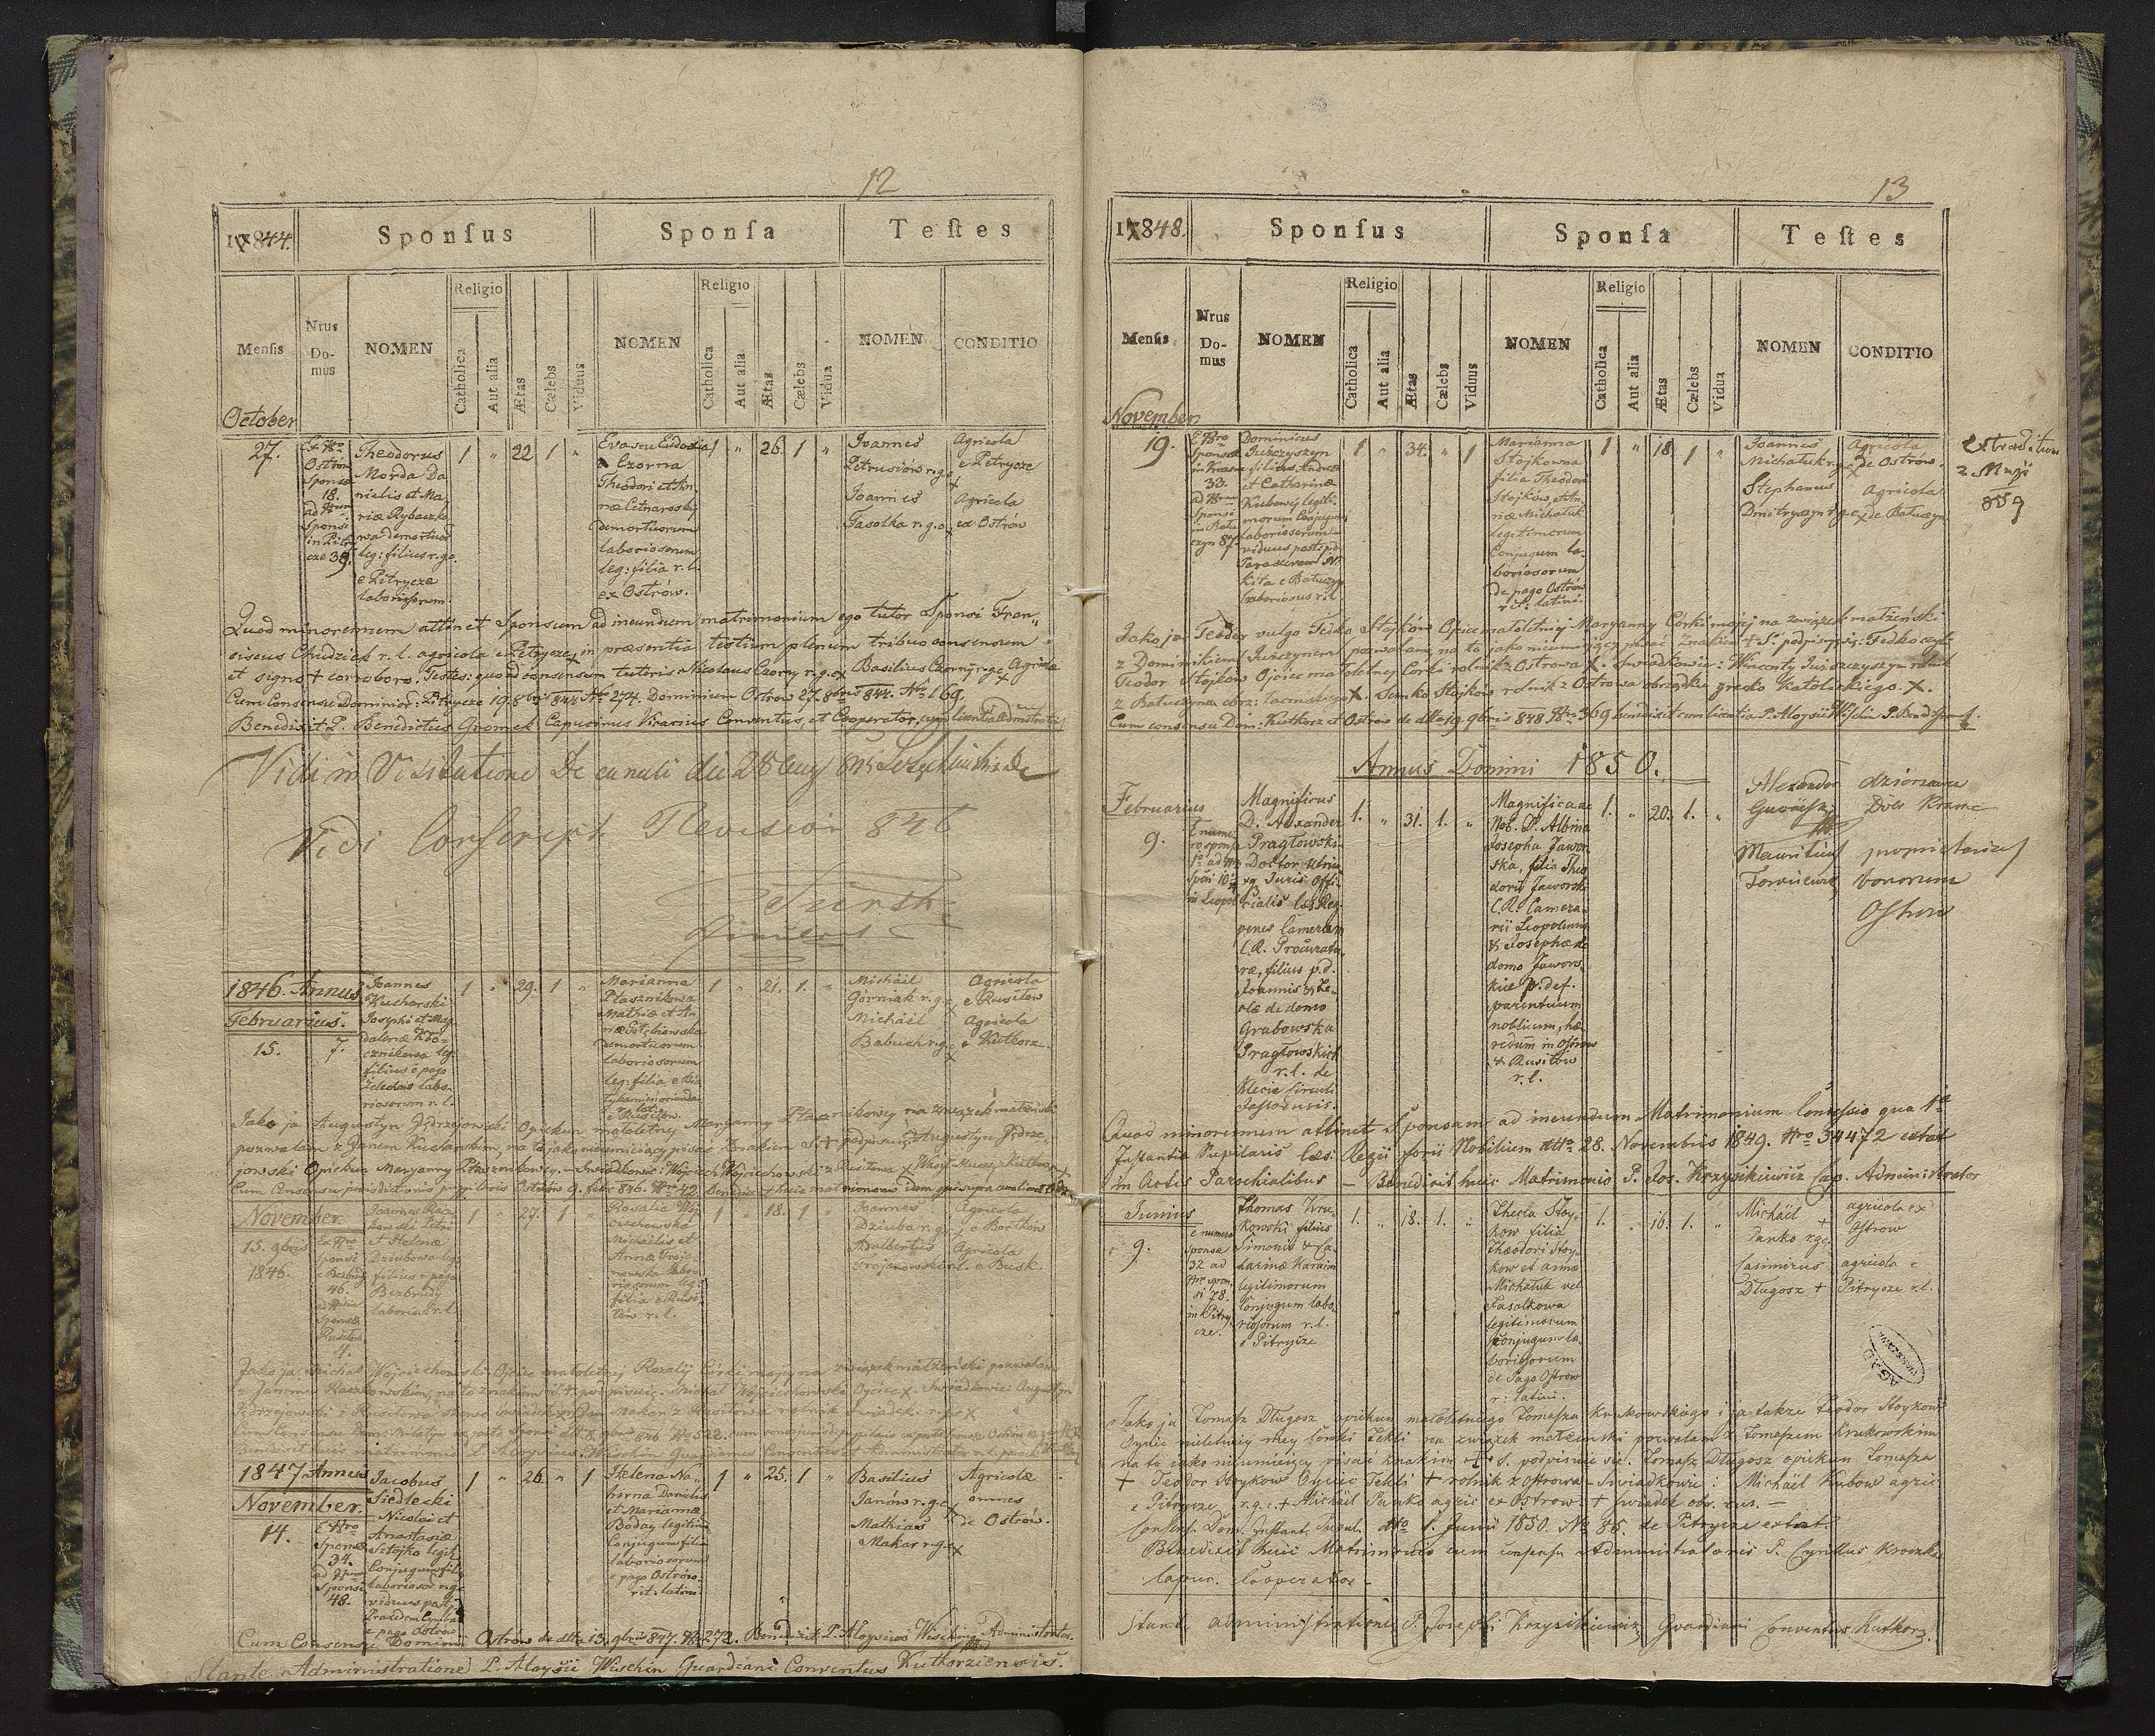 12
1844.
Sponſus
Sponſa
Teſtes
Menſis
Nrus Domus
NOMEN
Religio
Catholica
Aut alia
Ætas
Cælebs
Viduus
NOMEN
Religio
Catholica
Aut alia
Ætas
Cælebs
Vidua
NOMEN
CONDITIO
October
27.
Ex Nro
Ostrów
Sponsæ
18.
ad Nrum
Sponsi
in Pitry
cze 39.
Theodorus
Morda Da
nielis et Ma
riæ Rybaczko
wa demortuor
leg: filius r.g.c.
e Pitrycze
laboriosorum.
1 " 22 1 "
Eva seu Eudoxia
Czorna
Theodori et An
næ
demortuorum
laboriosorum
leg: filia r. l.
ex Ostrów.
1 " 26. 1 "
Joannes
Petrusiów r.g.c.
Joannes
Fasolka r.g.c.
Agricola
e Pitrycze
Agricola
ex Ostrów
Quod minorennem attinet Sponsum ad ineundum matrimonium ego tutor Sponsi Fran„
ciscus Chudzick r. l. agricola e Pitrycze, in præsentia testium plenum tribuo consensum
et signo + corroboro. Testes: quoad consensum tutoris Nicolaus Czorny r.g.c. Basilius Czorny r.g.c. Agricolæ
Cum Consensu dominior: Pitrycze 19 8bris 844 Nro 274. Dominium Ostrów 27. 8bris 844. No 169.
Benedixit P. Benedictus Gromek Capucinus Vicarius Conventus, et Cooperator, cum licentia Administratoris
Vidi in Visitatione Decanali die 28 Aug
Vidi Conscript. Revision 846
1846. Annus
Februarius.
15. 7.
Joannes
Kucharski
Josephi et Mag
dalenæ Kło„
cznikowa leg.
filius e pago
labo„
riosorum r. l.
1 " 29. 1 "
Marianna
Płasznikowa
Mathiæ et An
næ Gołębiowska
demortuorum
laboriosorum
leg: filia e
1 " 21. 1. "
Michäel
Górniak r.g.c.
Michäel
Babuch r.g.c.
Agricola
e Rusiłow
Agricola
e Kutkorz.
Jako ja Augustyn Jędrzejowski Opiekun małoletniej Maryanny Płasznikowej na związek małżeński
pozwalam z Janem Kucharskim, na to jako nieumiejący pisać znakiem S. + podpisuję Augustyn Jędrze„
jowski Opiekun Maryanny Płasznikowej. Świadkowie: Woyciech Woyciechowski z Rusiłowa
Cum Consensu jurisdictionis pupillaris Ostrów 9. febr 846. Nro 42. Benedixit huic matrimonio idem qui supra
November.
15. 9bris
1846.
Ex Nro
sponsi
e Bezbrudy
46.
ad Nrum
Sponsæ
Rusiłow
4.
Joannes Racz
kowski Petri
et Helenæ
Dziubowa leg.
filius e pago
Bezbrudy
laborios. r. l.
1 " 27. 1 "
Rosalia Woj
ciechowska
Michäelis et
Annæ Troja
nowska labo
riosorum leg.
filia e Rusi
łow r. l.
1 " 18. 1 "
Joannes
Dziuba r.g.c.
Adalbertus
Trojanowski r.l.
Agricola
e Bortków
Agricola
e Busk.
Jako ja Michał Wojciechowski Ojciec małoletniej Rozalij Córki mojej na związek małżeński pozwalam
z Janem Raczkowskim, na to znakiem S. + podpisuję. Michał Wojciechowski Ojciec X. Świadkowie: Augustyn
Jędrzejowski z Rusiłowa
1847 Annus
November.
14.
E Nro
Sponsæ
34.
ad Nrum
Sponsi
48.
Jacobus
Siedlecki
Nicolai et
Anastasiæ
Stojko legit.
Conjugum filius
laborioso: r.g.c.
viduus post p.d.
e pago Ostrów
1 " 26 " 1
Helena Na„
horna Danielis
et Mariannæ
Boday legitim
Conjugum filia
laboriosorum
e pago Ostrów.
rit: latini.
1 " 25. 1 "
Basilius
Janów r.g.c.
Mathias
Makar r.g.c.
Agricolæ
omnes
de Ostrów.
Cum Consensu Dominii Ostrów de dto 13. 9bris 847. No 272. Benedixit P. Aloysius Wischin Administrator.
Stante Administratione P. Aloysii Wischin Guardiani Conventus Kutkorziensis.
13
1848.
Sponſus
Sponſa
Teſtes
Menſis
Nrus Domus
NOMEN
Religio
Catholica
Aut alia
Ætas
Cælebs
Viduus
NOMEN
Religio
Catholica
Aut alia
Ætas
Cælebs
Vidua
NOMEN
CONDITIO
November
19.
E Nro
Sponsæ
in Krasne
33.
ad Nrum
Sponsi
in Batu
czyn 87.
Dominicus
Juszczyszyn
filius Andreæ
et Catharinæ
Kubowej legiti
morum Conjugum
laboriosorum
viduus post p.d.
Parascevam Ni
kita e Batuczyn
laboriosus r. l.
1 " 34. " 1
Marianna
Stojkowna
filia Theodori
Stojków et An
næ Michaluk
legitimorum
Conjugum la„
boriosorum
de pago Ostrów
rit: latini.
1 " 18. 1 "
Joannes
Michaluk r.g.c.
Stephanus
Dmitryszyn r.g.c.
Agricola
de Ostrów.
Agricola
de Batuczyn
Extraditum
2. Maji
859
Jako ja Teodor vulgo Fedko Stojków Ojciec małoletniej Maryanny Córki mojej na związek małżeński
z Dominikiem Juszczyszynem pozwalam, na to jako nieumiejący pisać Znakiem + S. podpisuję: Fedko czyli
Teodor Stojków Ojciec małoletniej Córki rolnik z Ostrowa X. Świadkowie: Wincenty Juszczyszyn rolnik
z Batuczyna obrz: łacińskiego X. Semko Stojków rolnik z Ostrowa obrządku grecko Katolickiego. X.
Cum consensu Dom. Kutkorz et Ostrow de dto 19. 9bris 848. Nro 369 benedixit cum licentia P. Aloysii Wischin
Annus Domini 1850.
Februarius
9.
E nume
ro sponsæ
1o ad Nrum
in Leopol
Magnificus
D. Alexander
Pragłowski
Doctor utrius
que Juris Offi
cialis Cæs. Reg.
penes Cameralem
C. R. Procurato
ræ, filius p.d.
Joannis &
de domo
Grabowska
Pragłowskich
r. l. de
Klecie Circuli
Jasloensis.
1. " 31. 1. "
Magnifica ac
Nob. D. Albina
Josepha Jawor
ska, filia Theo
dori Jaworski
C. R. Camera
rii Leopoliensis
& Josephæ de
domo Jawors
kie p. def.
parentum
nobilium, hæ
redum in Ostrow
& Rusiłow
r. l.
1. " 20. 1. "
Alexander
Mauritius
dzierżawca
Dóbr Krasne
proprietarius
bonorum
Ostrow
Quod minorennem attinet Sponsam ad ineundum Matrimonium Concessio qua 1ae
Instantiæ Pupillaris Cæs. Regii forii Nobilium ddto 28. Novembris 1849. Nro 34472 extat
in Actis Parochialibus — Benedixit huic Matrimonio P. Jos. Krzysikiewicz Cap. Administrator
Junius
9.
e numero
Sponsæ
32 ad
Nr. spon
si 78.
in Pitry
cze.
Thomas Kru
kowski filius
Simonis & Ca
tarinæ Karaim
legitimorum
Conjugum labo
riosorum r. l.
e Pitrycze
1. " 18. 1. "
Thecla Stoy
kow filia
Theodori Stoy
kow et annæ
Michaluk vel
Fasolkowa
legitimorum
conjugum la
boriosorum
de Pago Ostrow
r: latini.
1. " 16. 1. "
Michäel +
Panko r.g.c.
Casimirus
Długosz +
agricola ex
Ostrow
agricola e
Pitrycze r.l.
AGAD
WARSZAWA
Jako ja Tomasz Długosz opiekun małoletniego Tomasza Krukowskiego i ja także Teodor Stoykow
Oyciec nieletniey mey córki Tekli na związek małżeński pozwalam z Tomaszem Krukowskim
na to iako nieumieiący pisać znakim + S. podpisuie się. Tomasz Długosz opiekun Tomasza
+ Teodor Stoykow Oyciec Tekli + rolnik z Ostrowa - Świadkowie: Michäel Kubow agric
e Pitrycze r.g.c. + Michäel Panko agric ex Ostrow + świadek obr. rus. —
Consens. Dom. Instant. Pupul. ddto 8. Junii 1850. No 86. de Pitrycze extat.
Benedixit huic Matrimonio cum consensu Administratoris P. Cyrillus Kroczka
Capuc. Cooperator
Stante administratione P. Josephi Krzysikiewicz Guardiani Conventus Kutkorz.